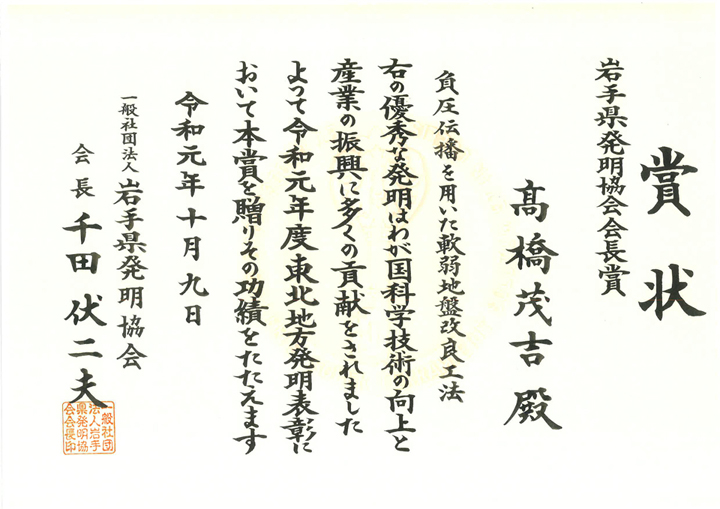 賞状
岩手県発明協会会長賞
髙橋茂吉殿
負圧伝播を用いた軟弱地盤改良工法
右の優秀な発明はわが国科学技術の向上と
産業の振興に多くの貢献をされました
よって令和元年度東北地方発明表彰に
おいて本賞を贈りその功績をたたえます
令和元年十月九日
一般社団法人岩手県発明協会
会長千田伏二夫
一般社団
法人岩手
県発明協
会会長印